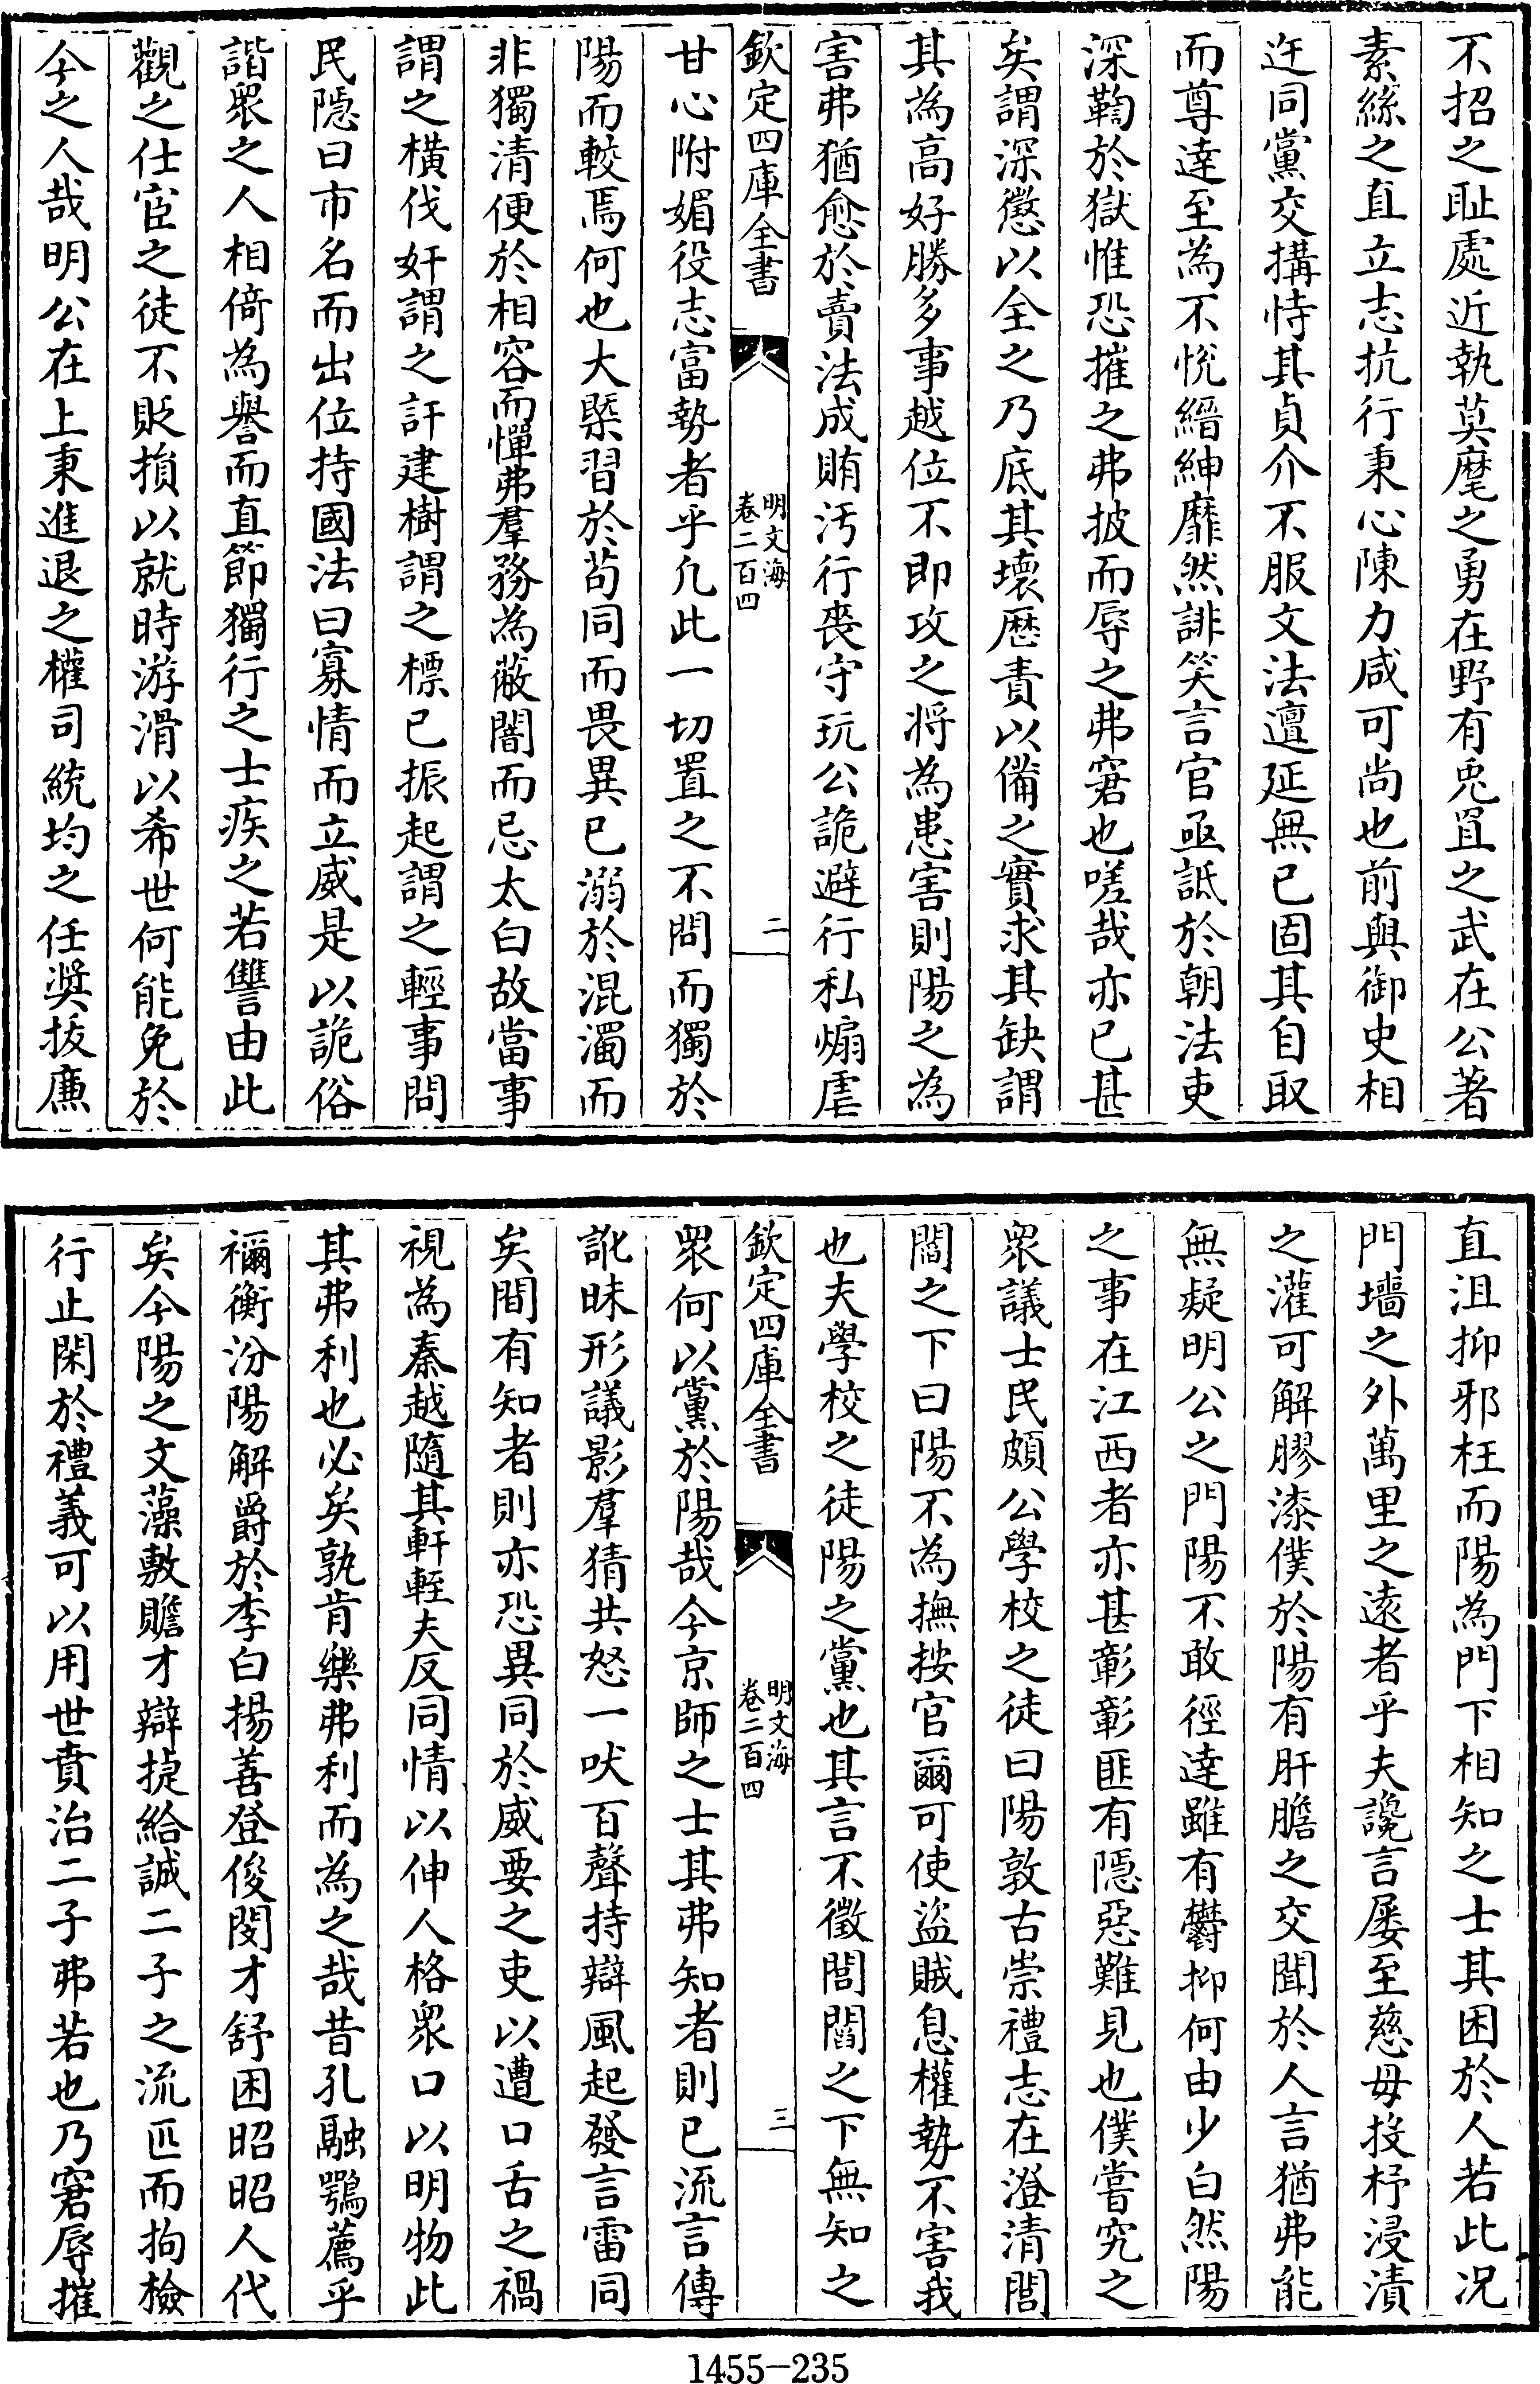 不招之耻處近執莫麾之勇在野有兎罝之武在公著
素絲之直立志抗行秉心陳力咸可尚也前與御史相
迕同黨交搆恃其貞介不服文法邅延無已固其自取
而尊逹至為不悅縉紳靡然誹笑言官亟詆於朝法吏
深鞫於獄惟恐摧之弗披而辱之弗窘也嗟哉亦已甚
矣謂深懲以全之乃底其壞厯責以備之實求其缺謂
其為高好勝多事越位不即攻之将為患害則陽之為
害弗猶愈於賣法成賄汚行喪守玩公詭避行私煽虐
欽定四庫全書
明文海
卷二百四
二
甘心附媚役志富勢者乎凡此一切置之不問而獨於
陽而較焉何也大槩習於苟同而畏異已溺於混濁而
非獨清便於相容而憚弗羣務為蔽闇而忌太白故當事
謂之橫伐奸謂之訐建樹謂之標已振起謂之輕事問
民隱曰市名而出位持國法曰寡情而立威是以詭俗
諧衆之人相倚為譽而直節獨行之士疾之若讐由此
觀之仕宦之徒不貶損以就時游滑以希世何能免於
今之人哉明公在上秉進退之權司統均之任奨拔廉
直沮抑邪枉而陽為門下相知之士其困於人若此况
門墻之外萬里之遠者乎夫讒言屢至慈母投杼浸漬
之灌可解膠漆僕於陽有肝膽之交聞於人言猶弗能
無疑明公之門陽不敢徑逹雖有鬱抑何由少白然陽
之事在江西者亦甚彰彰匪有隱惡難見也僕嘗究之
衆議士民頗公學校之徒曰陽敦古崇禮志在澄清閭
閻之下曰陽不為撫按官爾可使盜賊息權勢不害我
也夫學校之徒陽之黨也其言不徵閭閻之下無知之
欽定四庫全書
明文海
卷二百四
三
衆何以黨於陽哉今京師之士其弗知者則已流言傳
訛昧形議影羣猜共怒一吠百聲持辯風起發言雷同
矣間有知者則亦恐異同於威要之吏以遭口舌之禍
視為秦越隨其軒輊夫反同情以伸人格衆口以明物此
其弗利也必矣孰肯樂弗利而為之哉昔孔融鶚薦乎
禰衡汾陽解爵於李白揚善登俊閔才舒困昭昭人代
矣今陽之文藻敷贍才辯捷給誠二子之流匹而拘檢
行止閑於禮義可以用世賁治二子弗若也乃窘辱摧
1455-235